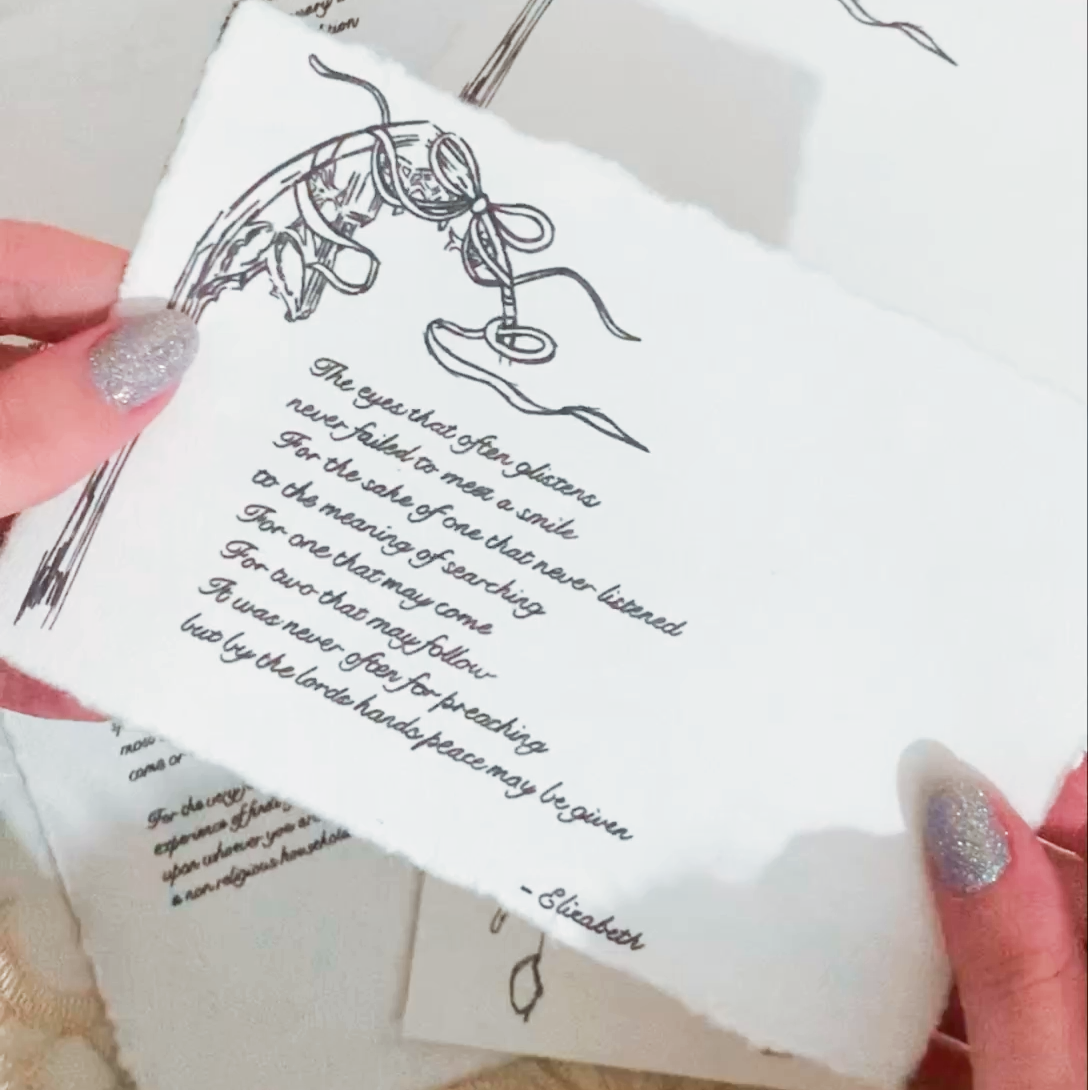 tion
The eyes that often glistens
never failed to meet a smile
For the sake of one that never listened
to the meaning of searching
For one that may come
For two that may follow
It was never often for preaching
but by the lords hands peace may be given
- Elizabeth
came or
For the very
experience of
upon whoever you are
a non religious household